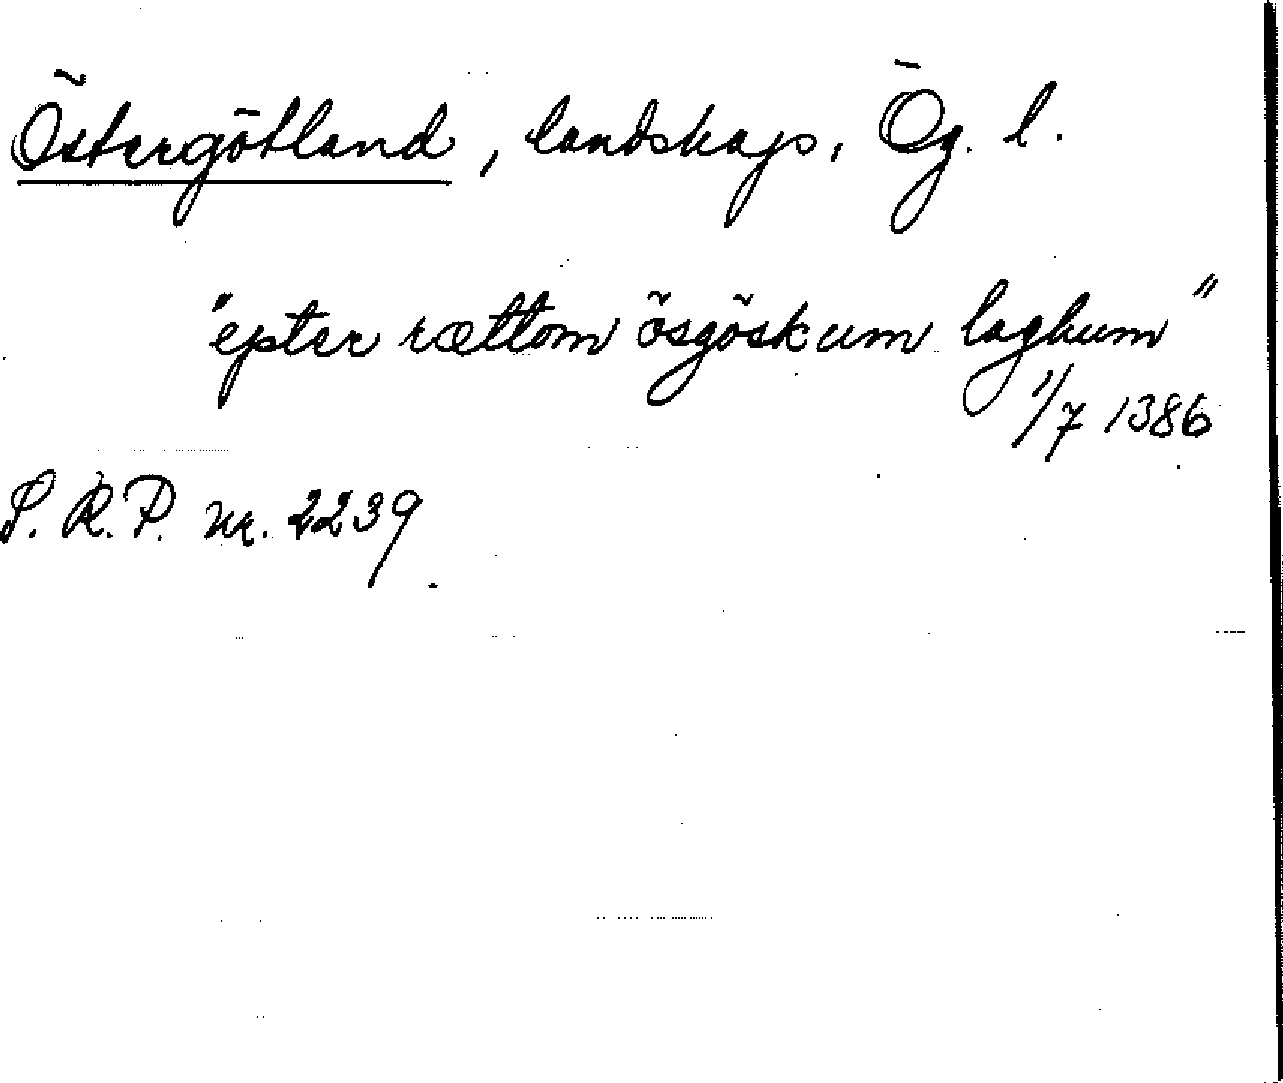 Östergötland, landskap, Ög. l.
"epter rættom ösgöskum laghum"
1/7 1386
S. R. P. nr. 2239